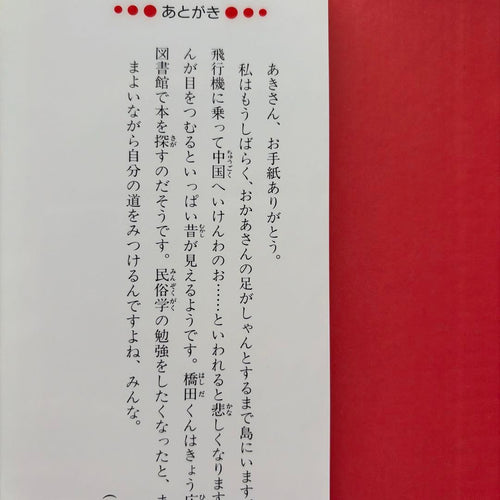 あとがき
あきさん、お手紙ありがとう。
私はもうしばらく、おかあさんの足がしゃんとするまで島にいます
飛行機に乗って中国へいけんわのお……といわれると悲しくなります
んが目をつむるといっぱい昔が見えるようです。橋田くんはきょう
図書館で本を探すのだそうです。民俗学の勉強をしたくなったと、
まよいながら自分の道をみつけるんですよね、みんな。